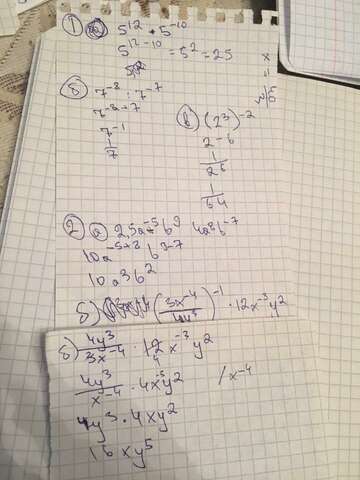 1 а) 5¹² · 5⁻¹⁰
5¹²⁻¹⁰ = 5² = 25
б) 7⁻⁸ : 7⁻⁷
7⁻⁸⁺⁷
7⁻¹
1/7
в) (2³)⁻²
2⁻⁶
1/2⁶
1/64
2 а) 2,5a⁻⁵b⁹ 4a⁸b⁻⁷
10a⁻⁵⁺⁸ b⁹⁻⁷
10a³b²
б) (3x⁻⁴/4y³)⁻¹ · 12x⁻³y²
б) 4y³/3x⁻⁴ · 12x⁻³y²
4
4y³/x⁻⁴ · 4x⁻³y² /x⁻⁴
4y³ · 4xy²
16xy⁵